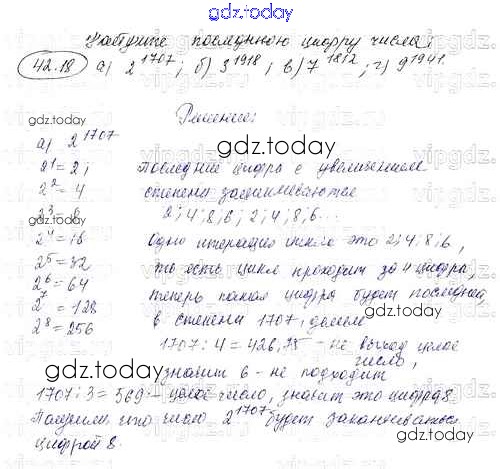 gdz.today
Найдите последнюю цифру числа:
42.18 а) 2^1707; б) 3^1918; в) 7^1812; г) 9^1941.
Решение:
gdz.today
gdz.today
а) 2^1707
2^1 = 2; Последние цифра с увеличением
2^2 = 4 степени зацикливаются
gdz.today
2^3 = 8 2; 4; 8; 6; 2; 4; 8; 6...
2^4 = 16 Одно итерация цикла это 2; 4; 8; 6,
2^5 = 32 то есть цикл проходит за 4 цифры,
2^6 = 64 теперь какая цифра будет последней,
2^7 = 128 в степени 1707, делим
gdz.today
2^8 = 256 1707 : 4 = 426,75 - не выход целое
число,
gdz.today
значит 6 - не подходит
1707 : 3 = 569 - целое число, значит это цифра 8.
Получим что число 2^1707 будет заканчиваться
gdz.today
цифрой 8.